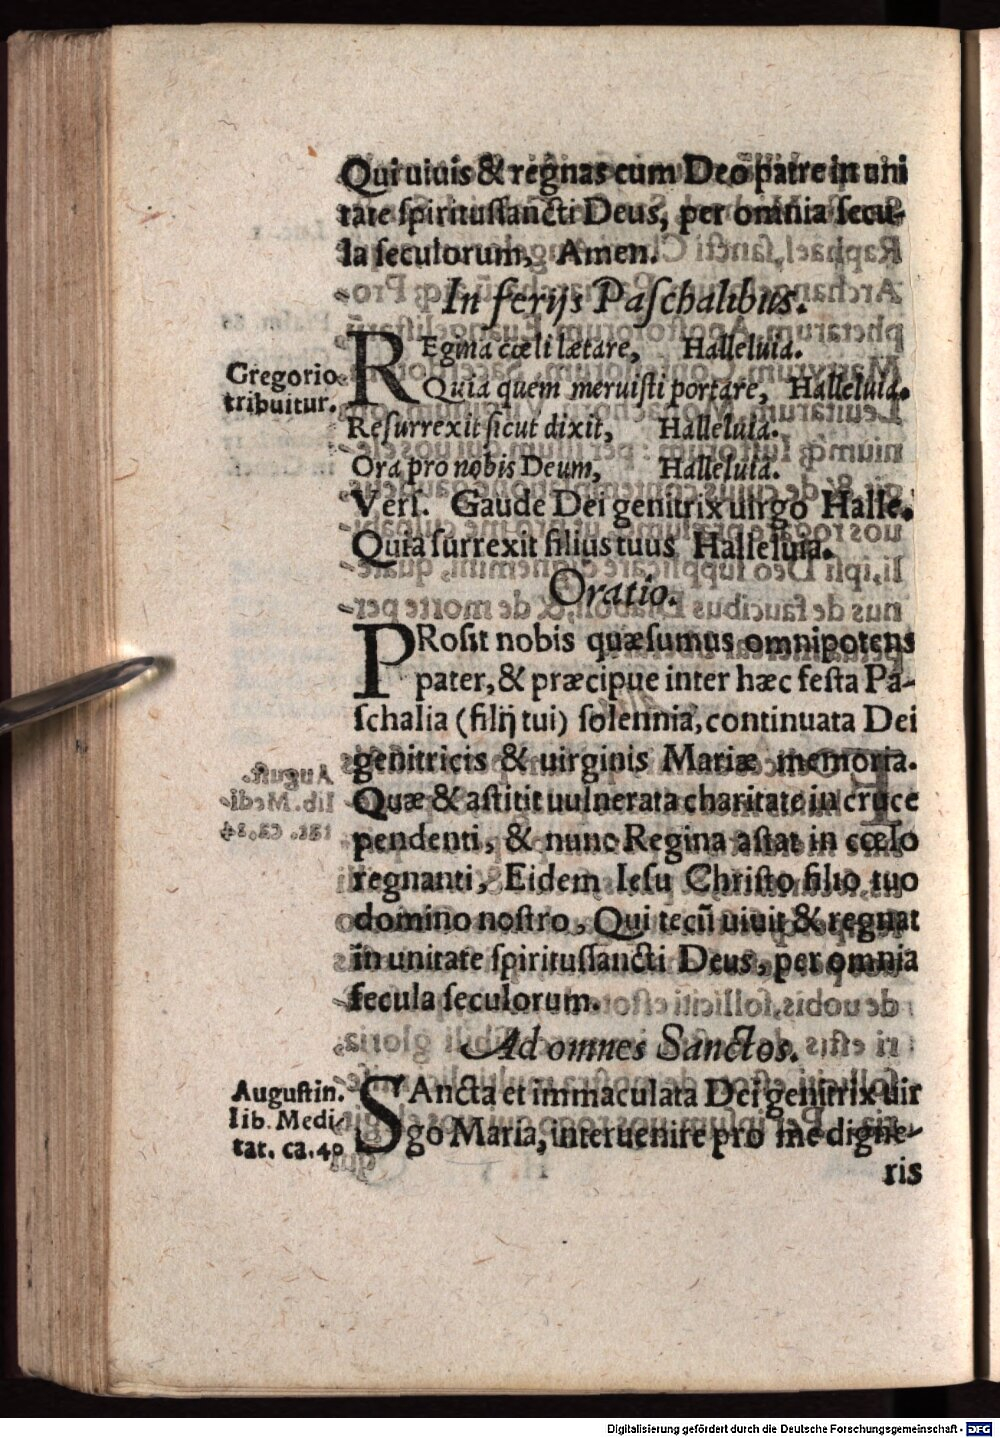 Qui uiuis & regnas cum Deo patre in uni
tate ſpirituſſancti Deus, per omnia ſecu-
la ſeculorum, Amen.
In ferijs Paſchalibus.
Gregorio
tribuitur.
REgina cœli lætare, Halleluia.
Quia quem meruiſti portare, Halleluia.
Reſurrexit ſicut dixit, Halleluia.
Ora pro nobis Deum, Halleluia.
Verſ. Gaude Dei genitrix uirgo Halle.
Quia ſurrexit filius tuus Halleluia.
Oratio.
PRoſit nobis quæſumus omnipotens
pater, & præcipue inter hæc feſta Pa-
ſchalia (filij tui) ſolennia, continuata Dei
genitricis & uirginis Mariæ memoria.
Quæ & aſtitit uulnerata charitate in cruce
pendenti, & nunc Regina aſtat in cœlo
regnanti, Eidem Ieſu Chriſto filio tuo
domino noſtro, Qui tecū uiuit & regnat
in unitate ſpirituſſancti Deus, per omnia
ſecula ſeculorum.
Ad omnes Sanctos.
Auguſtin.
lib. Medi-
tat. ca. 40
SAncta et immaculata Dei genitrix uir
go Maria, interuenire pro me digne-
ris
Digitalisierung gefördert durch die Deutsche Forschungsgemeinschaft - DFG